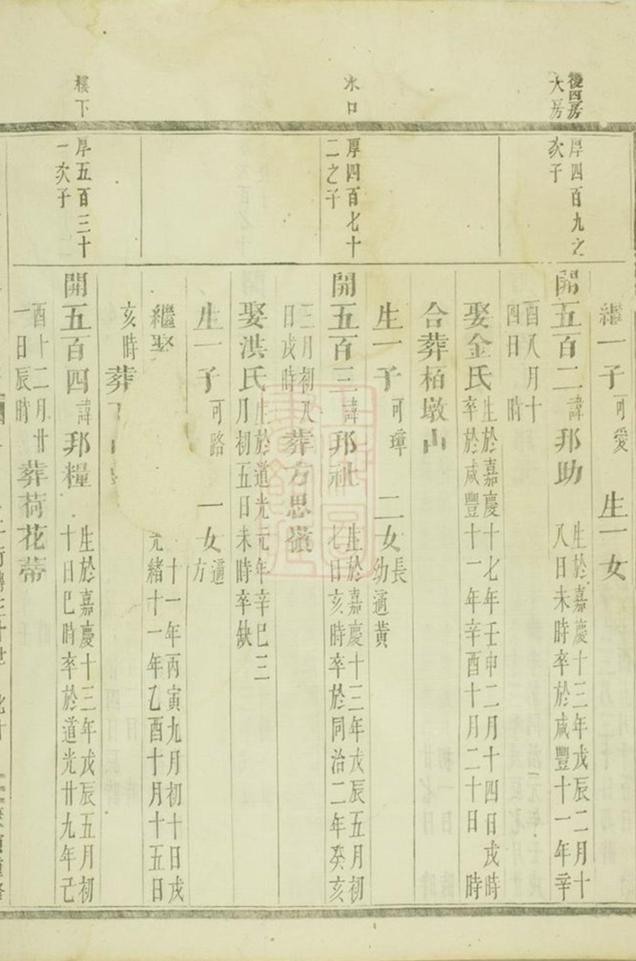 繼一子可愛 生一女
後四房
大房
厚四百九之
次子
開五百二諱邦助生於嘉慶十三年戊辰二月十
八日未時卒於咸豐十一年辛
酉八月十
四日 時
娶金氏生於嘉慶十七年壬申二月十四日戌時
卒於咸豐十一年辛酉十月二十日 時
合葬栢墩山
生一子可 二女長
幼適黃
水口
厚四百七十
二之子
開五百三諱邦社生於嘉慶十三年戊辰五月初
七日亥時卒於同治二年癸亥
三月初八
日戌時 葬方思嶺
娶洪氏生於道光元年辛巳三
月初五日未時卒缺
生一子可路 一女適
方
繼娶 十一年丙寅九月初十日戌
光緒十一年乙酉十月十五日
亥時 葬
樓下
厚五百三十
一次子
開五百四諱邦糧生於嘉慶十三年戊辰五月初
十日巳時卒於道光廿九年己
酉十二月廿
一日辰時 葬荷花蒂